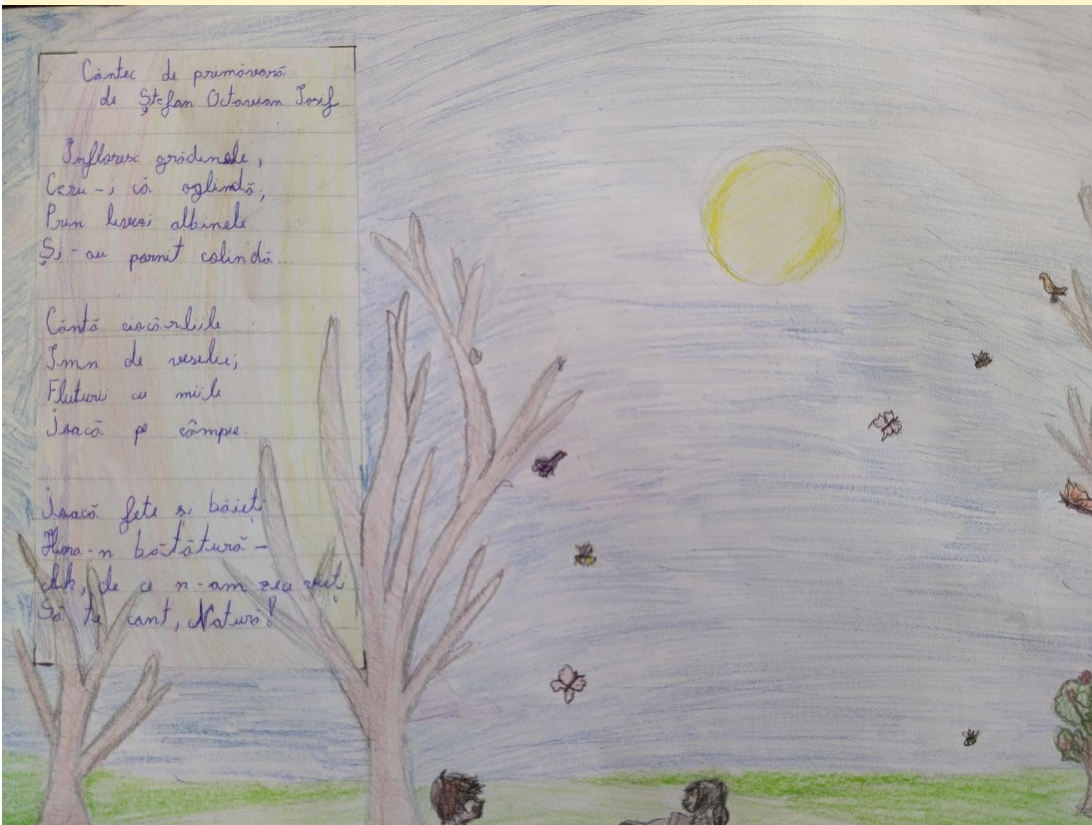 Cântec de primăvară
de Ștefan Octavian Iosif
Înfloresc grădinele,
Ceru-i că oglindă,
Prin livezi albinele
Și-au pornit colindă...
Cântă ciocârliile
Imn de veselie;
Fluturi cu miile
Joacă pe câmpie.
Joacă fete și băieți
Hora-n bătătură -
Ah, de ce n-am zece vieți
Să te cant, Natură!